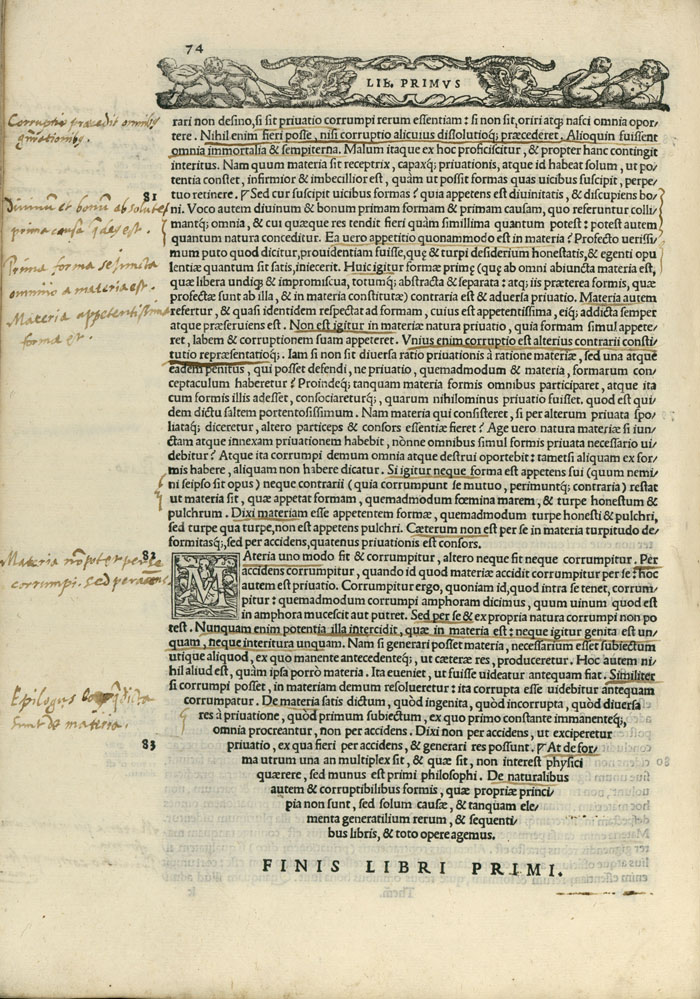 74
LIB. PRIMVS
rari non desino, si sit priuatio corrumpi rerum essentiam: si non sit, oriri atq; nasci omnia opor-
tere. Nihil enim fieri posse, nisi corruptio alicuius dissolutioq; præcederet. Alioquin fuissent
omnia immortalia & sempiterna. Malum itaque ex hoc proficiscitur, & propter hanc contingit
interitus. Nam quum materia sit receptrix, capaxq; priuationis, atque id habeat solum, ut po-
tentia constet, infirmior & imbecillior est, quàm ut possit formas quas uicibus suscipit, perpe-
tuo retinere. Sed cur suscipit uicibus formas? quia appetens est diuinitatis, & discupiens bo-
ni. Voco autem diuinum & bonum primam formam & primam causam, quo referuntur colli-
mantq; omnia, & cui quæque res tendit fieri quàm simillima quantum potest: potest autem
quantum natura conceditur. Ea uero appetitio quonammodo est in materia? Profecto uerissi-
mum puto quod dicitur, prouidentiam fuisse, quę & turpi desiderium honestatis, & egenti opu
lentiæ quantum sit satis, iniecerit. Huic igitur formæ primę (quę ab omni abiuncta materia est,
quæ libera undiq; & impromiscua, totumq; abstracta & separata: atq; iis præterea formis, quæ
profectæ sunt ab illa, & in materia constitutæ) contraria est & aduersa priuatio. Materia autem
refertur, & quasi identidem respectat ad formam, cuius est appetentissima, eiq; addicta semper
atque præseruiens est. Non est igitur in materiæ natura priuatio, quia formam simul appete-
ret, labem & corruptionem suam appeteret. Vnius enim corruptio est alterius contrarii consti-
tutio repræsentatioq;. Iam si non sit diuersa ratio priuationis à ratione materiæ, sed una atque
eadem penitus, qui posset defendi, ne priuatio, quemadmodum & materia, formarum con-
ceptaculum haberetur? Proindeq; tanquam materia formis omnibus participaret, atque ita
cum formis illis adesset, consociareturq;, quarum nihilominus priuatio fuisset. quod est qui
dem dictu saltem portentosissimum. Nam materia qui consisteret, si per alterum priuata spo-
liataq; diceretur, altero particeps & consors essentiæ fieret? Age uero natura materiæ si iun-
ctam atque innexam priuationem habebit, nónne omnibus simul formis priuata necessario ui-
debitur? Atque ita corrumpi demum omnia atque destrui oportebit: tametsi aliquam ex for-
mis habere, aliquam non habere dicatur. Si igitur neque forma est appetens sui (quum nemi-
ni seipso sit opus) neque contrarii (quia corrumpunt se mutuo, perimuntq; contraria) restat
ut materia sit, quæ appetat formam, quemadmodum fœmina marem, & turpe honestum &
pulchrum. Dixi materiam esse appetentem formæ, quemadmodum turpe honesti & pulchri,
sed turpe qua turpe, non est appetens pulchri. Cæterum non est per se in materia turpitudo de-
formitasq;, sed per accidens, quatenus priuationis est consors.
MAteria uno modo fit & corrumpitur, altero neque fit neque corrumpitur. Per
accidens corrumpitur, quando id quod materiæ accidit corrumpitur per se: hoc
autem est priuatio. Corrumpitur ergo, quoniam id, quod intra se tenet, corrum
pitur: quemadmodum corrumpi amphoram dicimus, quum uinum quod est
in amphora mucescit aut putret. Sed per se & ex propria natura corrumpi non po
test. Nunquam enim potentia illa intercidit, quæ in materia est: neque igitur genita est un-
quam, neque interitura unquam. Nam si generari posset materia, necessarium esset subiectum
utique aliquod, ex quo manente antecedenteq;, ut cæteræ res, produceretur. Hoc autem ni-
hil aliud est, quàm ipsa porrò materia. Ita eueniet, ut fuisse uideatur antequam fiat. Similiter
si corrumpi posset, in materiam demum resolueretur: ita corrupta esse uidebitur antequam
corrumpatur. De materia satis dictum, quòd ingenita, quòd incorrupta, quòd diuersa
res à priuatione, quòd primum subiectum, ex quo primo constante immanenteq;,
omnia procreantur, non per accidens. Dixi non per accidens, ut exciperetur
priuatio, ex qua fieri per accidens, & generari res possunt. At de for-
ma utrum una an multiplex sit, & quæ sit, non interest physici
quærere, sed munus est primi philosophi. De naturalibus
autem & corruptibilibus formis, quæ propriæ princi-
pia non sunt, sed solum causæ, & tanquam ele-
menta generatilium rerum, & sequenti-
bus libris, & toto opere agemus.
FINIS LIBRI PRIMI.
Corruptio præcedit omnibus
generationibus.
81
Diuinum et bonum absolute
prima causa idem est.
Prima forma sejuncta
omnino a materia est.
Materia appetentissima
formæ est.
82
Materia non potest per se
corrumpi. sed per accidens.
Epilogus
sunt de materia.
83